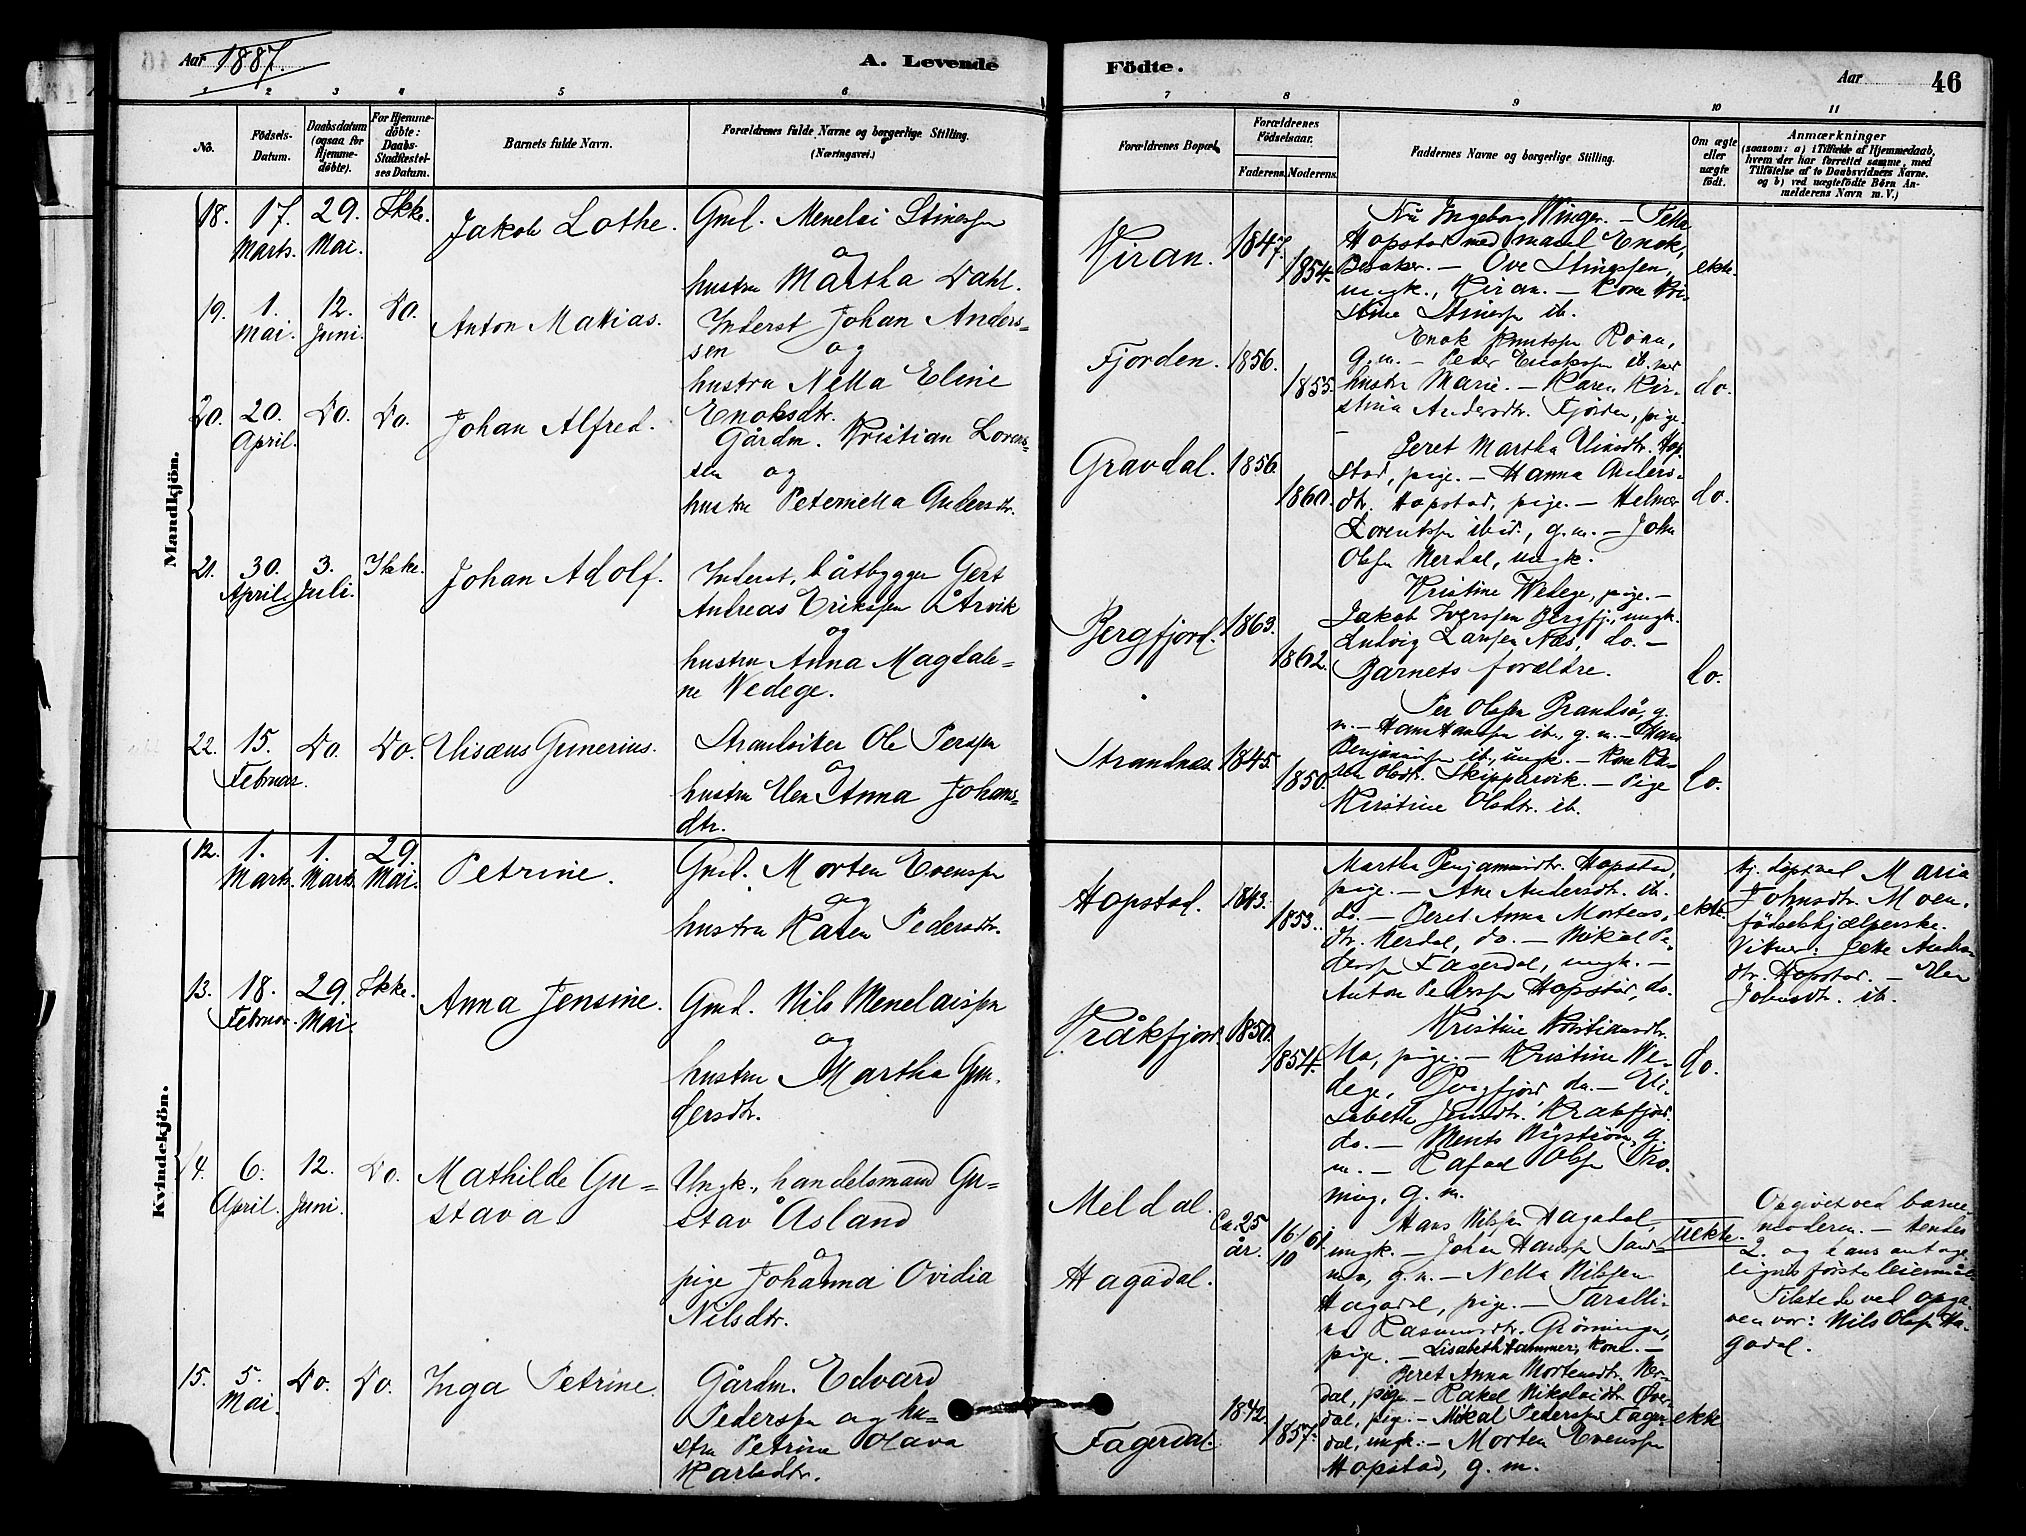 Aar 1887.
A. Levende
Födte.
Aar
46
1 2 3 4 5 6 7 8 9 10 11
No.
Födsels-
Datum.
Daabsdatum
(ogsaa for
Hjemme-
döbte).
For Hjemme-
döbte:
Daabs-
Stadfæstel-
ses Datum.
Barnets fulde Navn.
Forældrenes fulde Navne og borgerlige Stilling.
(Næringsvei.)
Forældrenes Bopæl.
Forældrenes
Födselsaar.
Faderens. Moderens.
Faddernes Navne og borgerlige Stilling.
Om ægte
eller
uægte
födt.
Anmærkninger
(saasom: a) i Tilfælde af Hjemmedaab,
hvem der har forrettet samme, med
Tilföielse af to Daabsvidners Navne.
og b) ved uægtefödte Börn An-
melderens Navn m. V.)
Mandkjön.
18.
17.
Marts.
29.
Mai.
Ikke.
Jakob Lothe.
Gmd. Menelai Stinessen
og
hustru Martha Dahl.
Kiran.
1847.
1854.
Ingeborg Winger. —
Hopstad med mand Enok,
— Ove Stinessen,
ungk., Kiran. — Kone Kri-
stine Stinessen ib.
ekte.
19.
1.
Mai.
12.
Juni.
Do.
Anton Matias.
Inderst Johan Anders-
sen og
hustru Nella Eline
Enoksdtr.
Fjorden.
1856.
1855.
Enok Knutssen Rönn,
g. m. — Peder Enokssen ib. med
hustru Marie. — Karen Kir-
stina Andersdtr. Fjorden, pige.
do.
20.
20.
April.
Do.
Do.
Johan Alfred.
Gårdm. Kristian Lorens-
sen og
hustru Peternella Andersdtr.
Gravdal.
1856
1860.
Beret Martha Hop-
stad, pige. — Hanna Anders-
dtr. Hopstad, pige. — Helmer
Lorentssen ibid., g. m. — John
Olsen Nerdal, ungk.
do.
21.
30.
April.
3.
Juli.
Ikke.
Johan Adolf.
Inderst, båtbygger Gert
Andreas Erikssen Årvik
og
hustru Anna Magdale-
ne Wedege.
Bergfjord.
1863.
1862.
Kristine Wedege, pige. —
Jakob Iverssen Bergfj., ungk.
Ludvig Larssen Næs, do. —
Barnets forældre.
do.
22.
15.
Februar.
Do.
Do.
Elisæus Gunerius.
Strandsitter Ole Perssen
og
hustru Elen Anna Johans-
dtr.
Strandnæs.
1845.
1850.
Per Olssen Brandsö, g.
m. — Hans Hanssen ib., g. m. — Hans
Benjaminsen ib., ungk. — Kone Ka-
ren Olsdtr. Skippervik. — Pige
Kirstine Olsdtr. ib.
do.
Kvindekjön.
12.
1.
Marts.
1.
Marts.
29.
Mai.
Petrine.
Gmd. Morten Evenssen
og
hustru Karen Pedersdtr.
Hopstad.
1843.
1853.
Martha Benjaminsdtr. Hopstad,
pige. — Ane Andersdtr. ib.
do. — Beret Anna Mortens-
dtr. Nerdal, do. — Mikal Pe-
derssen Fagerdal, ungk. —
Anton Pederssen Hopstad, do.
ekte.
Hj. döpt ved Maria
Johnsdtr. Moen,
födselshjælperske.
Vitner: Jette Anders-
dtr. Hopstad. — Elen
Johnsdtr. ib.
13.
18.
Februar.
29.
Mai.
Ikke.
Anna Jensine.
Gmd. Nils Menelaissen
og
hustru Martha Gun-
dersdtr.
Kråkfjord.
1850.
1854.
Kristine Kristiansdtr.
Mo, pige. — Kristine We-
dege, Bergfjord, do. — Eli-
sabeth Jensdtr. Kråkfjord.
do. — Ments Nyström, g.
m. — Rafael Olsen Kro-
ning, g. m.
do.
14.
6.
April.
12.
Juni.
Do.
Mathilde Gu-
stava
Ungk., handelsmand Gu-
stav Åsland
og
pige Johanna Ovidia
Nilsdtr.
Meldal.
Hagadal.
Ca. 25
år.
16/10 61.
Hans Nilssen Hagadal,
ungk. — Johan Hanssen Sand-
mo, g. m. — Nella Nilssen
Hagadal, pige. — Taralli-
ne Rasmusdtr. Grönningen,
pige. — Lisabeth Hammer, kone. —
uekte.
Opgivet ved barne-
moderen. — hendes
2. og hans antage-
ligvis förste leiermål.
Tilstede ved opga-
ven var: Nils Olsen Ha-
gadal.
15.
5.
Mai.
Do.
Do.
Inga Petrine.
Gårdm. Edvard
Pederssen og hu-
stru Petrine Olava
Karlsdtr.
Fagerdal.
1842.
1857.
Beret Anna Mortensdtr. Ner-
dal, pige — Rakel Nikolaidtr. Over-
dal, pig. — Mikal Pederssen Fager-
dal, ungk. — Morten Evenssen
Hopstad, g. m.
ekte